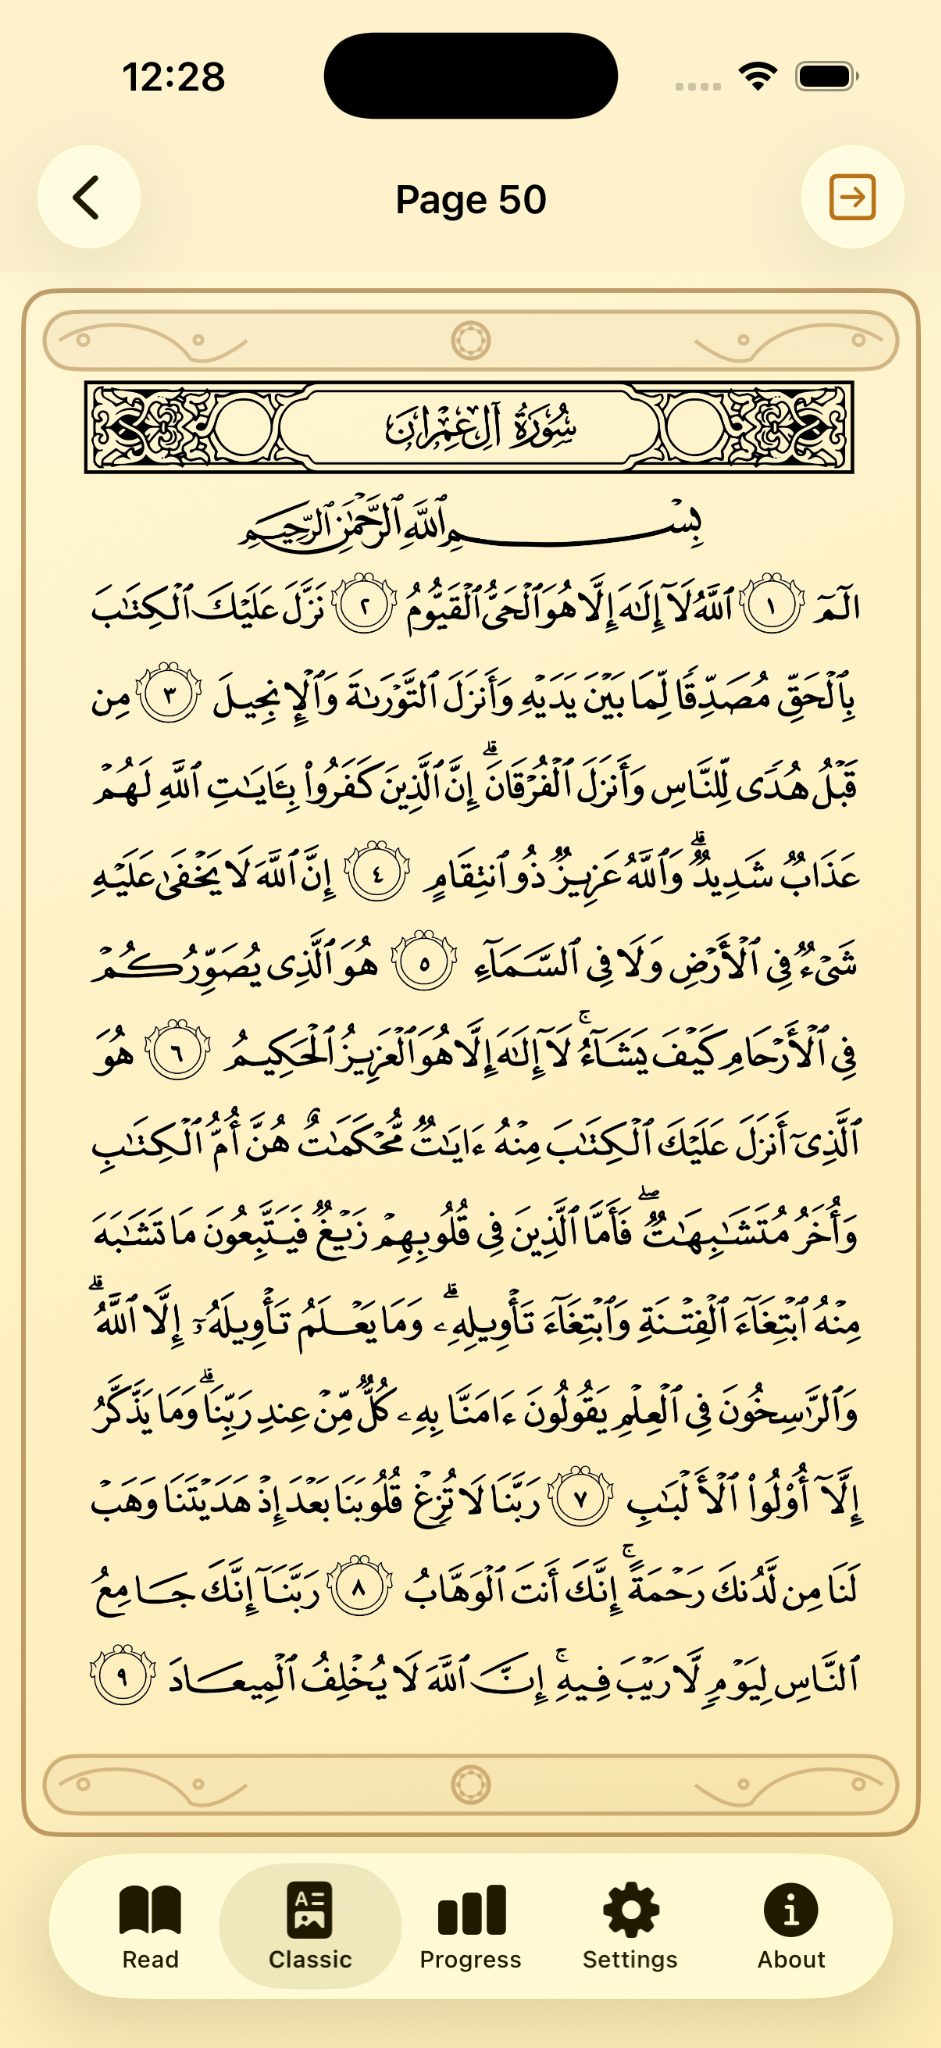 12:28
Page 50
سُورَةُ آلِ عِمْرَان
بِسْمِ ٱللَّهِ ٱلرَّحْمَٰنِ ٱلرَّحِيمِ
الٓمٓ ١ ٱللَّهُ لَآ إِلَٰهَ إِلَّا هُوَ ٱلْحَىُّ ٱلْقَيُّومُ ٢ نَزَّلَ عَلَيْكَ ٱلْكِتَٰبَ
بِٱلْحَقِّ مُصَدِّقًا لِّمَا بَيْنَ يَدَيْهِ وَأَنزَلَ ٱلتَّوْرَىٰةَ وَٱلْإِنجِيلَ ٣ مِن
قَبْلُ هُدًى لِّلنَّاسِ وَأَنزَلَ ٱلْفُرْقَانَ ۗ إِنَّ ٱلَّذِينَ كَفَرُوا۟ بِـَٔايَٰتِ ٱللَّهِ لَهُمْ
عَذَابٌ شَدِيدٌ ۗ وَٱللَّهُ عَزِيزٌ ذُو ٱنتِقَامٍ ٤ إِنَّ ٱللَّهَ لَا يَخْفَىٰ عَلَيْهِ
شَىْءٌ فِى ٱلْأَرْضِ وَلَا فِى ٱلسَّمَآءِ ٥ هُوَ ٱلَّذِى يُصَوِّرُكُمْ
فِى ٱلْأَرْحَامِ كَيْفَ يَشَآءُ ۚ لَآ إِلَٰهَ إِلَّا هُوَ ٱلْعَزِيزُ ٱلْحَكِيمُ ٦ هُوَ
ٱلَّذِىٓ أَنزَلَ عَلَيْكَ ٱلْكِتَٰبَ مِنْهُ ءَايَٰتٌ مُّحْكَمَٰتٌ هُنَّ أُمُّ ٱلْكِتَٰبِ
وَأُخَرُ مُتَشَٰبِهَٰتٌ ۖ فَأَمَّا ٱلَّذِينَ فِى قُلُوبِهِمْ زَيْغٌ فَيَتَّبِعُونَ مَا تَشَٰبَهَ
مِنْهُ ٱبْتِغَآءَ ٱلْفِتْنَةِ وَٱبْتِغَآءَ تَأْوِيلِهِۦ ۗ وَمَا يَعْلَمُ تَأْوِيلَهُۥٓ إِلَّا ٱللَّهُ ۗ
وَٱلرَّٰسِخُونَ فِى ٱلْعِلْمِ يَقُولُونَ ءَامَنَّا بِهِۦ كُلٌّ مِّنْ عِندِ رَبِّنَا ۗ وَمَا يَذَّكَّرُ
إِلَّآ أُو۟لُوا۟ ٱلْأَلْبَٰبِ ٧ رَبَّنَا لَا تُزِغْ قُلُوبَنَا بَعْدَ إِذْ هَدَيْتَنَا وَهَبْ
لَنَا مِن لَّدُنكَ رَحْمَةً ۚ إِنَّكَ أَنتَ ٱلْوَهَّابُ ٨ رَبَّنَآ إِنَّكَ جَامِعُ
ٱلنَّاسِ لِيَوْمٍ لَّا رَيْبَ فِيهِ ۚ إِنَّ ٱللَّهَ لَا يُخْلِفُ ٱلْمِيعَادَ ٩
Read Classic Progress Settings About